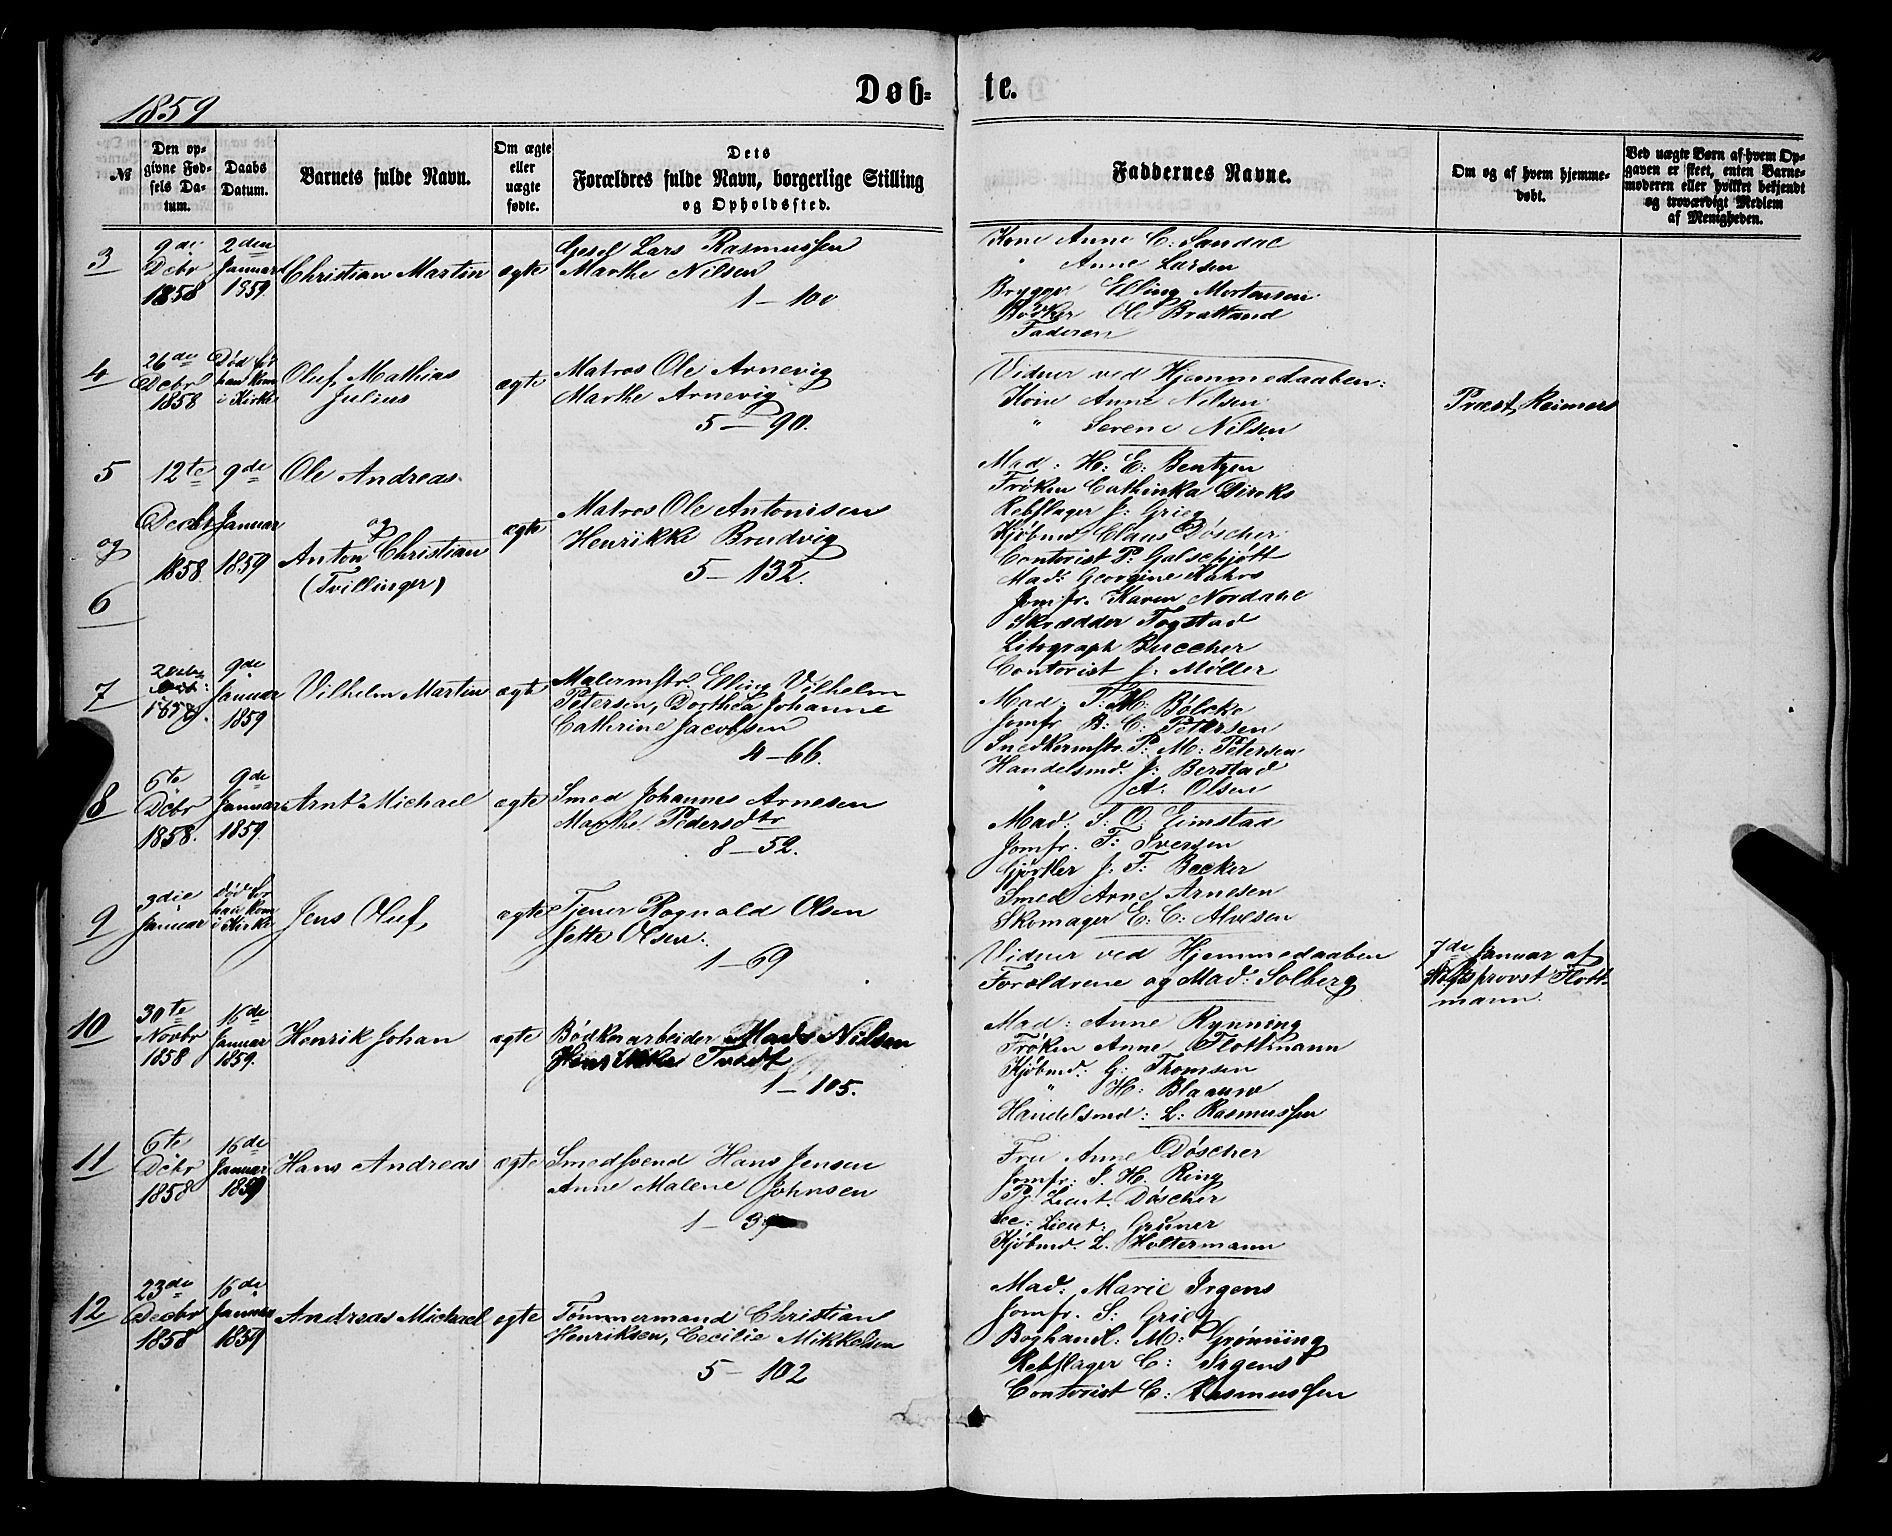 1859
Døb= te.
№
Den op-
givne Fød-
sels Da-
tum.
Daabs
Datum.
Barnets fulde Navn.
Om ægte
eller
uægte
fødte.
Dets
Forældres fulde Navn, borgerlige Stilling
og Opholdssted.
Faddernes Navne.
Om og af hvem hjemme-
døbt.
Ved uægte Børn af hvem Op-
gaven er skeet, enten Barne-
moderen eller hvilket bekjendt
og troværdigt Medlem
af Menigheden.
3
9de
Decbr
1858
2den
Januar
1859
Christian Martin
ægte
Gesel Lars Rasmussen
Marthe Nilsen
1 - 100
Kone Anne C: Sandal
" Anne Larsen
Brygger Elling Mortensen
Bødker Ole Brattand
Faderen
4
26de
Decbr
1858
Død før
han kom
i Kirke
Oluf Mathias
Julius
ægte
Matros Ole Arnevig
Marthe Arnevig
5 - 90.
Vidner ved Hjemmedaaben:
Kone Anne Nilsen
" Serene Nilsen
Præst Reimers
5
og
6
12te
Decbr
1858
9de
Januar
1859
Ole Andreas
og
Anton Christian
(Tvillinger)
ægte
Matros Ole Antonisen
Henrikke Brudvig
5 - 132.
Mad: H: E: Bentzen
Frøken Cathinka Dircks
Rebslager J: Grieg
Kjøbmd Claus Døscher
Contorist P: Galschjøtt
Mad: Georgine Kahrs
Jomfr. Karen Nordahl
Skrædder Fogstad
Litograph Buccher
Contorist J: Møller
7
1858
9de
Januar
1859
Vilhelm Martin
ægte
Malermstr Elling Vilhelm
Petersen, Dorthea Johanne
Cathrine Jacobsen
4 - 66.
Mad: T: M: Bølcke
Jomfr B: C: Petersen
Snedkermstr. P: M: Petersen
Handelsmd. J: Berstad
" A: Olsen
8
6te
Decbr
1858.
9de
Januar
1859.
Arnt Michael
ægte
Smed Johannes Arnesen
Marthe Pedersdtr
8 - 52.
Mad: S: O. Eimstad
Jomfr. F: Iversen
Gjørtler J. F: Becker
Smed Arne Arnesen
Skomager E: C: Alvesen
9
3die
Januar
død før
han kom
i Kirke
Jens Oluf
ægte
Tjener Rognald Olsen
Jette Olsen.
1 - 69
Vidner ved Hjemmedaaben
Forældrene og Mad: Solberg
7de Januar af
Stiftsprovst Flott-
mann.
10
30te
Novbr
1858
16de
Januar
1859.
Henrik Johan
ægte
Bødkerarbeider Mads Nilsen
Henrikke Tvedt
1 - 105.
Mad: Anne Rynning
Frøken Anne Flottmann
Kjøbmd: G: Thomsen
" H: Blaauw
Handelsmd: L: Rasmussen
11
6te
Decbr
1858
16de
Januar
1859
Hans Andreas
ægte
Smedsvend Hans Jensen
Anne Malene Johnsen
1 - 39
Fru Anne Døscher
Jomfr: S. H. Ring
Pr: Lieut. Døscher
Sec: Lieut: Grüner
Kjøbmd. L. Holtermann
12
23de
Decbr
1858
16de
Januar
1859
Andreas Michael
ægte
Tømmermand Christian
Henriksen, Cecilie Mikkelsen
5 - 102
Mad: Marie Irgens
Jomfr. S: Grieg
Boghandl: M: Grønning
Rebslager C: Irgens
Contorist C: Rasmussen